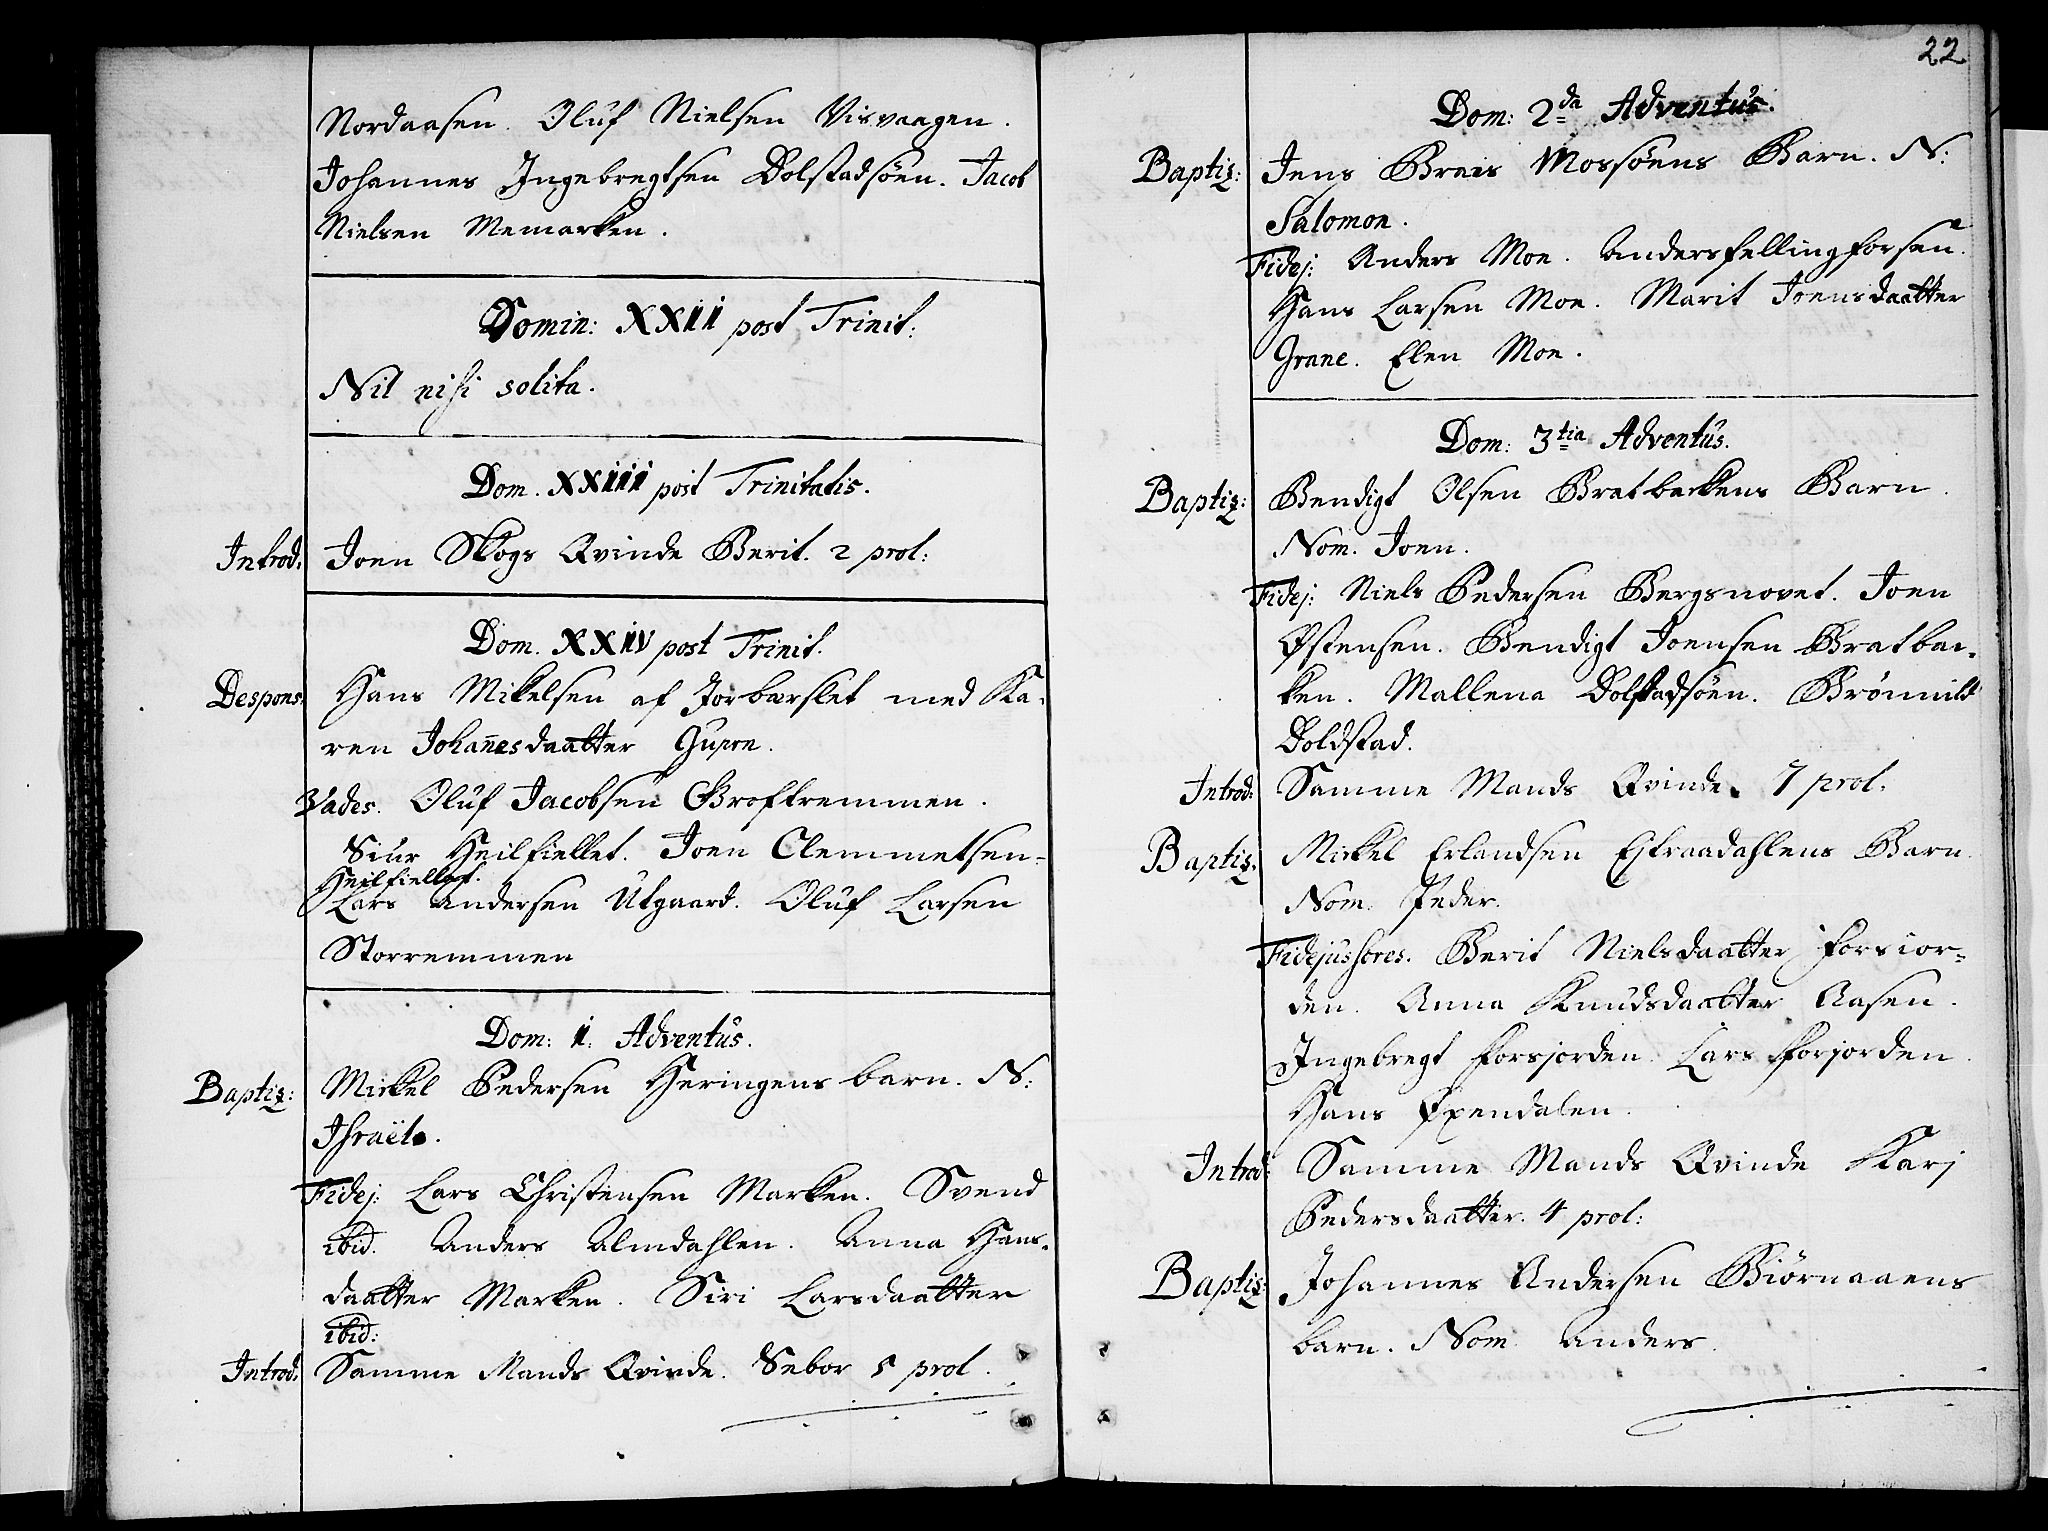 Nordaasen. Oluf Nielsen Visvaagen.
Johannes Ingebregtsen Dolstadsöen. Jacob
Nielsen Memarken.
Domin: XXII post Trinit:
Nil nisi solita.
Dom. XXIII post Trinitatis.
Introd: Joen Skogs Qvinde Berit. 2 prol:
Dom. XXIV post Trinit.
Despons: Hans Mikelsen af Jorbærslet med Ka-
ren Johanesdaatter
Vades. Oluf Jacobsen
Siur Heilfiellet. Joen Clemmetsen-
Heilfiellet.
Lars Andersen Utgaard. Oluf Larsen
Storremmen
Dom: 1. Adventus.
Baptiz: Mickel Pedersen Heringens barn. N:
Israël.
Fidej: Lars Christensen Marken. Svend
ibid. Anders Almdahlen. Anna Hans-
daatter Marken. Siri Larsdaatter
ibid:
Introd: Samme Mands Qvinde. Sebor 5 prol.
22
Dom: 2da Adventus.
Baptiz: Jens Mossöens Barn. N:
Salomon.
Fidej: Anders Moe. Anders fellingforsen.
Hans Larsen Moe. Marit Joensdaatter
Grane. Elen Moe.
Dom: 3tia Adventus.
Baptiz: Bendigt Olsen Bratbackens Barn.
Nom. Joen.
Fidej: Niels Pedersen Bergsnovet. Joen
Østensen. Bendigt Joensen Bratbac-
ken. Mallena Dolstadsöen. Brönnild
Doldstad.
Introd: Samme Mands Qvinde. 7 prol.
Baptiz. Mickel Erlandsen Barn.
Nom. Peder.
Fidejussores. Berit Nielsdaatter Forsior-
den. Anna Knudsdaatter Aasen.
Ingebregt Forsjorden. Lars Forsjorden.
Hans
Introd: Samme Mands Qvinde Karj
Pedersdaatter. 4 prol:
Baptiz: Johannes Andersen Biörnaaens
barn. Nom. Anders.